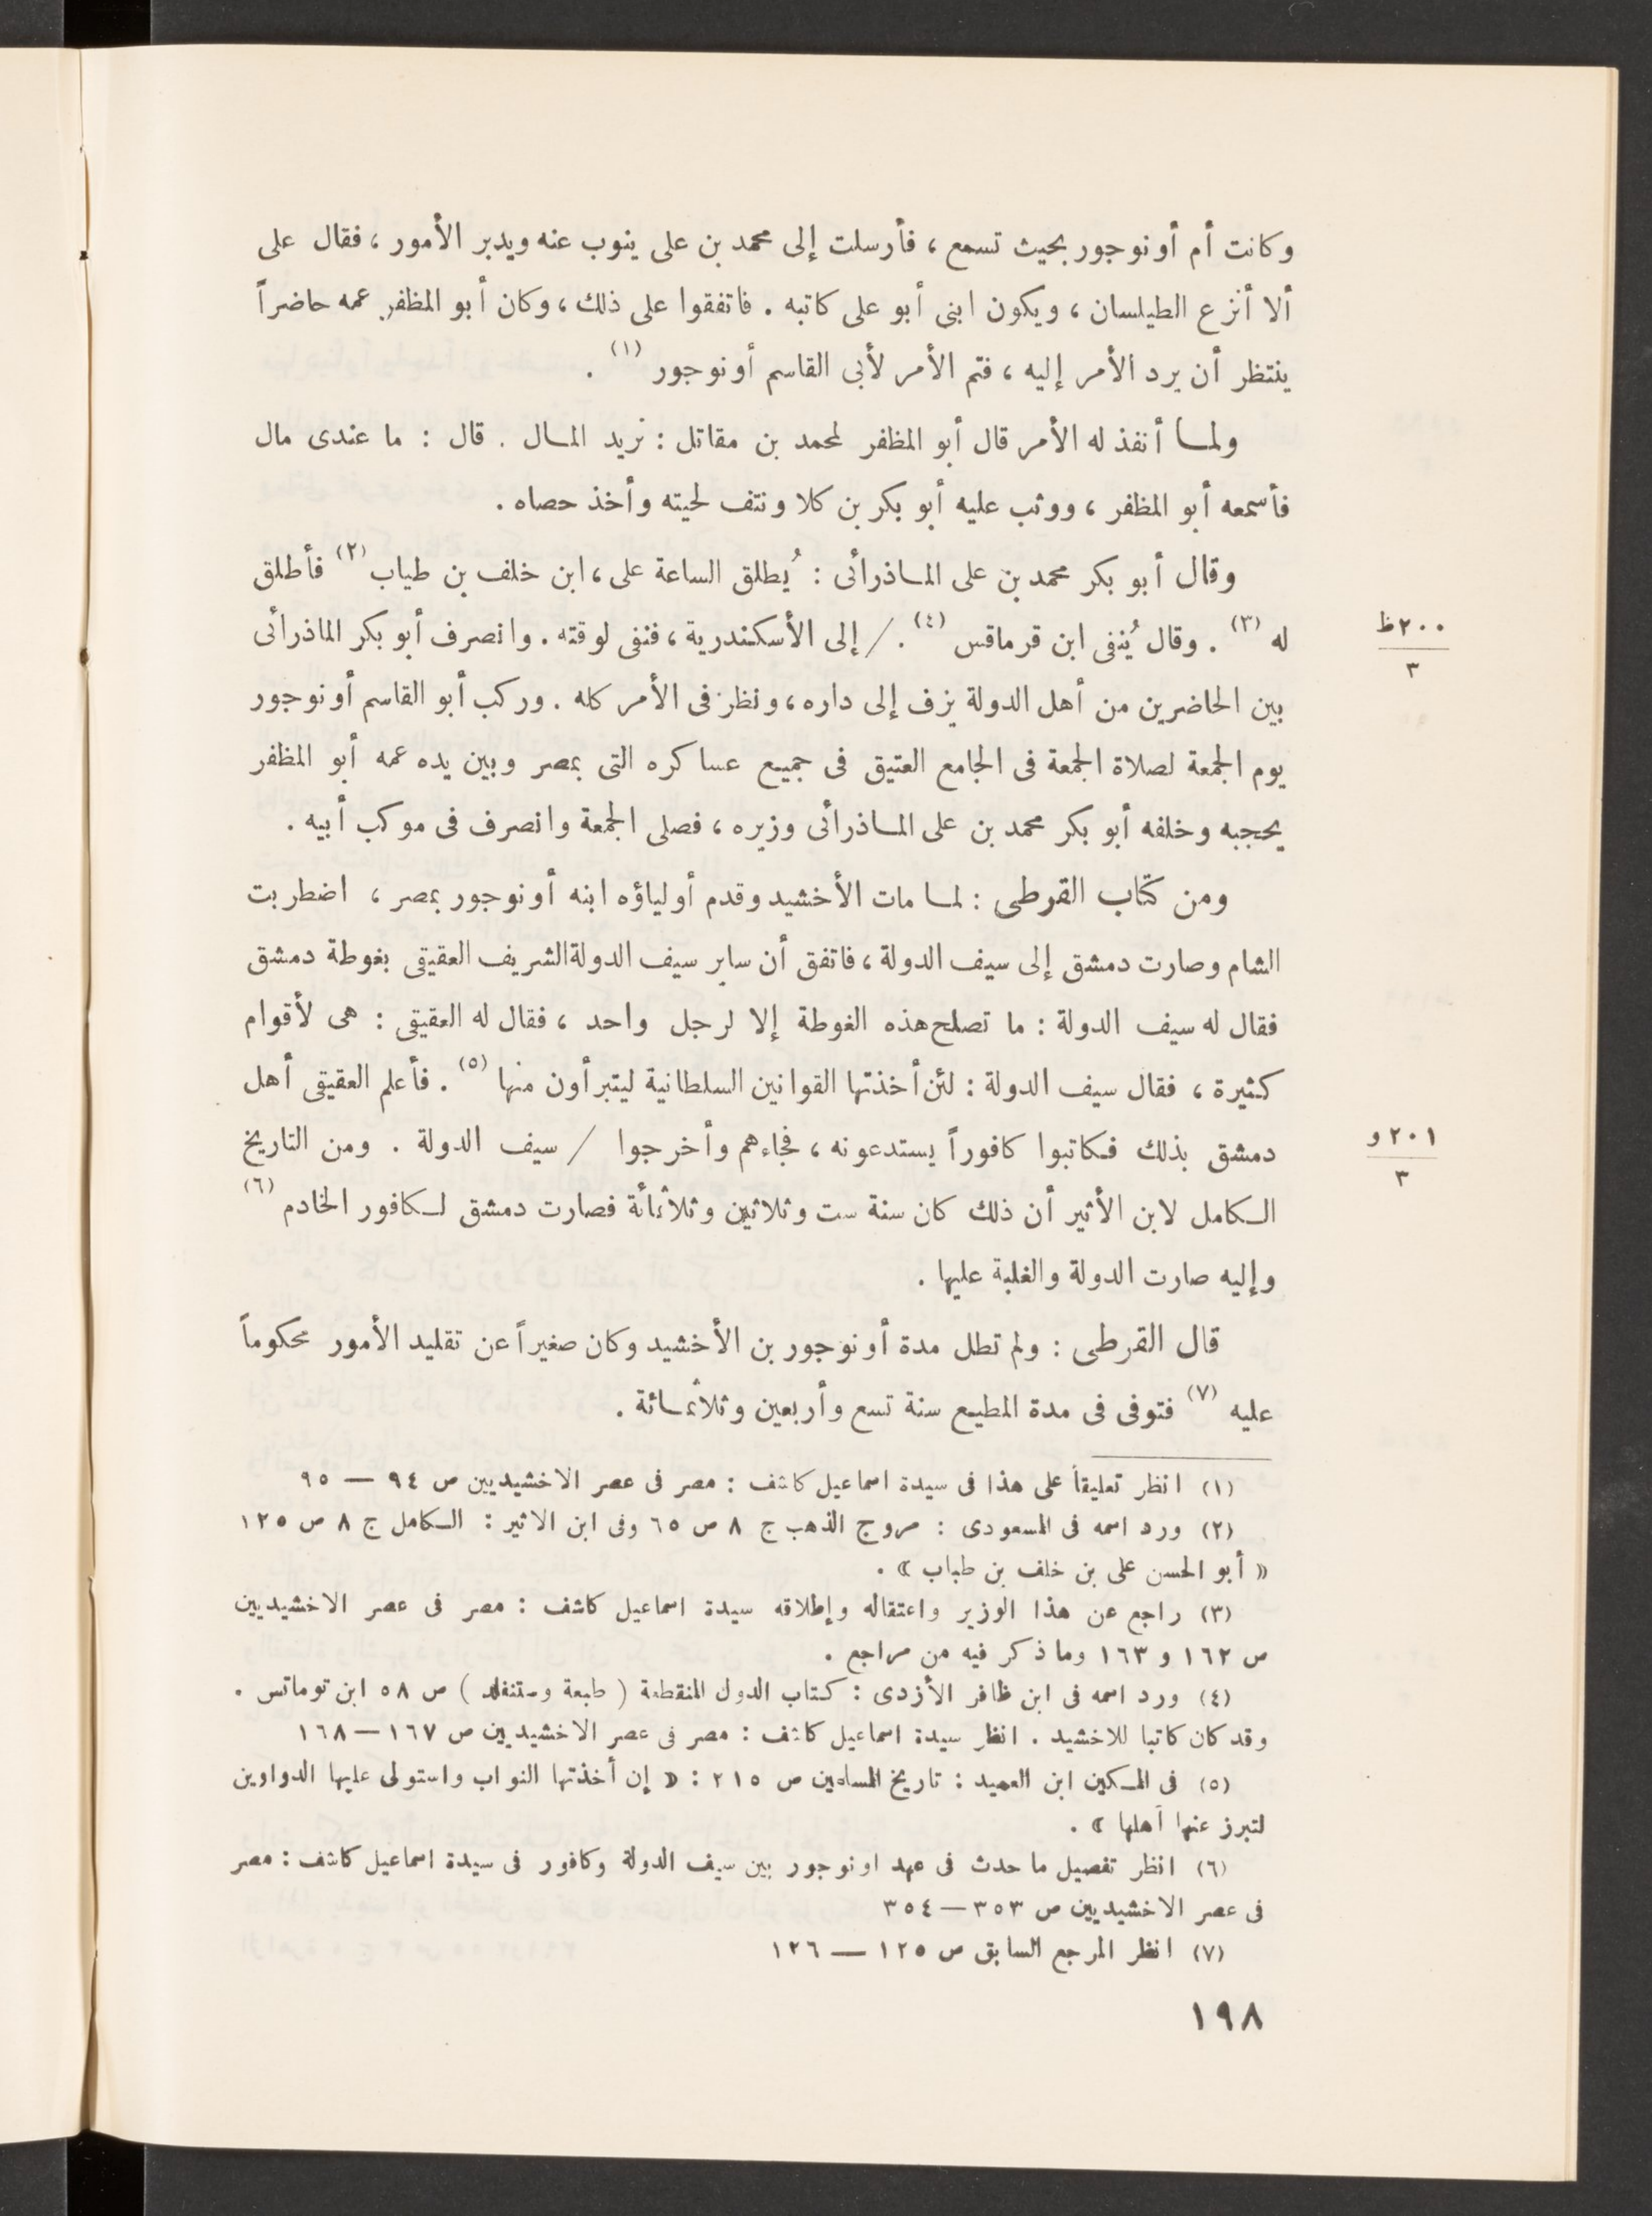 وكانت أم أونوجور بحيث تسمع ، فأرسلت إلى محمد بن على ينوب عنه ويدبر الأمور ، فقال على
ألا أنزع الطيلسان ، ويكون ابنى أبو على كاتبه . فاتفقوا على ذلك ، وكان أبو المظفر عمه حاضراً
ينتظر أن يرد الأمر إليه ، فتم الأمر لأبى القاسم أونوجور (١) .
ولما أنفذ له الأمر قال أبو المظفر لمحمد بن مقاتل : نريد المال . قال : ما عندى مال
فأسمعه أبو المظفر ، ووثب عليه أبو بكر بن كلا ونتف لحيته وأخذ حصاه .
وقال أبو بكر محمد بن على الماذرائى : يُطلق الساعة على ، ابن خلف بن طياب (٢) فأطلق
له (٣) . وقال يُنفى ابن قرماقس (٤) . / إلى الأسكندرية ، فنفى لوقته . وانصرف أبو بكر الماذرائى
٢٠٠ظ
٣
بين الحاضرين من أهل الدولة يزف إلى داره ، ونظر فى الأمر كله . وركب أبو القاسم أونوجور
يوم الجمعة لصلاة الجمعة فى الجامع العتيق فى جميع عساكره التى بمصر وبين يده عمه أبو المظفر
يحجبه وخلفه أبو بكر محمد بن على الماذرائى وزيره ، فصلى الجمعة وانصرف فى موكب أبيه .
ومن كتاب القرطى : لما مات الأخشيد وقدم أولياؤه ابنه أونوجور بمصر ، اضطربت
الشام وصارت دمشق إلى سيف الدولة ، فاتفق أن ساير سيف الدولة الشريف العقيقى بغوطة دمشق
فقال له سيف الدولة : ما تصلح هذه الغوطة إلا لرجل واحد ، فقال له العقيقى : هى لأقوام
كثيرة ، فقال سيف الدولة : لئن أخذتها القوانين السلطانية ليتبرأون منها (٥) . فأعلم العقيقى أهل
دمشق بذلك فكاتبوا كافوراً يستدعونه ، فجاءهم وأخرجوا / سيف الدولة . ومن التاريخ
٢٠١و
٣
الكامل لابن الأثير أن ذلك كان سنة ست وثلاثين وثلاثمائة فصارت دمشق لكافور الخادم (٦)
وإليه صارت الدولة والغلبة عليها .
قال القرطى : ولم تطل مدة أونوجور بن الأخشيد وكان صغيراً عن تقليد الأمور محكوماً
عليه (٧) فتوفى فى مدة المطيع سنة تسع وأربعين وثلاثمائة .
(١) انظر تعليقاً على هذا فى سيدة اسماعيل كاشف : مصر فى عصر الاخشيديين ص ٩٤ — ٩٥
(٢) ورد اسمه فى المسعودى : مروج الذهب ج ٨ ص ٦٥ وفى ابن الاثير : الكامل ج ٨ ص ١٢٥
« أبو الحسن على بن خلف بن طباب » .
(٣) راجع عن هذا الوزير واعتقاله وإطلاقه سيدة اسماعيل كاشف : مصر فى عصر الاخشيديين
ص ١٦٢ و ١٦٣ وما ذكر فيه من مراجع .
(٤) ورد اسمه فى ابن ظافر الأزدى : كتاب الدول المنقطعة ( طبعة وستنفلد ) ص ٥٨ ابن توماتس .
وقد كان كاتبا للاخشيد . انظر سيدة اسماعيل كاشف : مصر فى عصر الاخشيديين ص ١٦٧ — ١٦٨
(٥) فى المكين ابن العميد : تاريخ المسلمين ص ٢١٥ : « إن أخذتها النواب واستولى عليها الدواوين
لتبرز عنها أهلها » .
(٦) انظر تفصيل ما حدث فى عهد اونوجور بين سيف الدولة وكافور فى سيدة اسماعيل كاشف : مصر
فى عصر الاخشيديين ص ٣٥٣ — ٣٥٤
(٧) انظر المرجع السابق ص ١٢٥ — ١٢٦
١٩٨